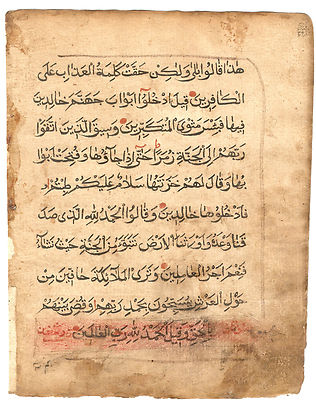 هذا قالوا بلى ولكن حقت كلمة العذاب على
الكافرين قيل ادخلوا ابواب جهنم خالدين
فيها فبئس مثوى المتكبرين وسيق الذين اتقوا
ربهم الى الجنة زمرا حتى اذا جاؤها وفتحت ابوا
بها وقال لهم خزنتها سلام عليكم طبتم
فادخلوها خالدين وقالوا الحمد لله الذى صد
قنا وعده واورثنا الارض نتبوء من الجنة حيث نشاء
فنعم اجر العاملين وترى الملائكة حافين من
حول العرش يسبحون بحمد ربهم وقضى بينهم
بالحق وقيل الحمد لله رب العالمين